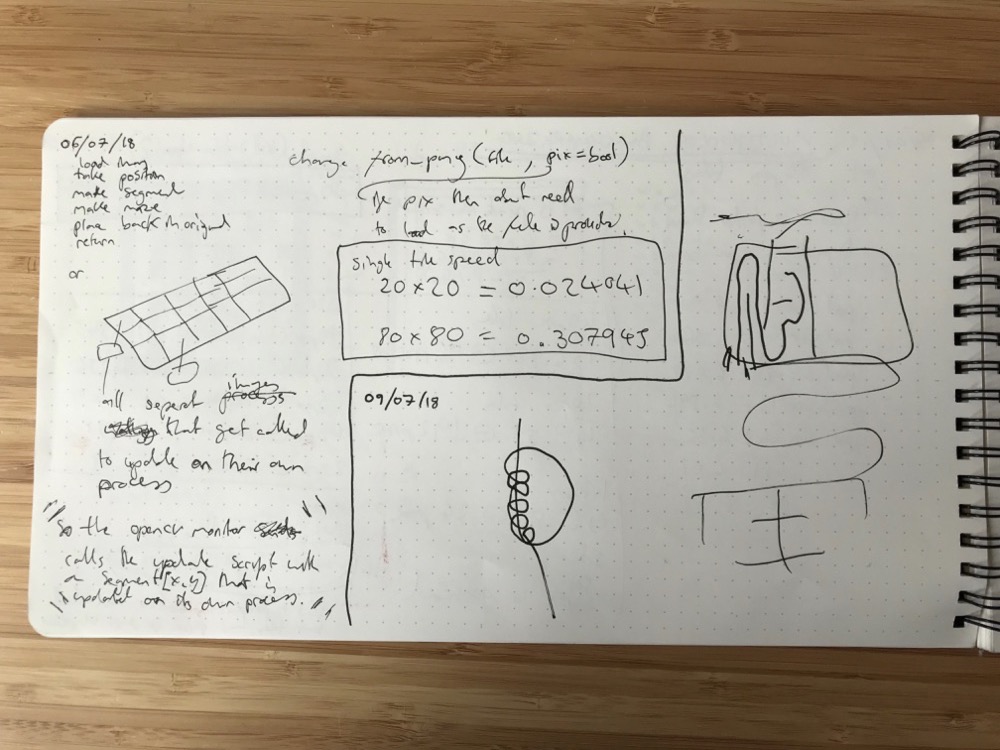 06/07/18
load img
take position
make segment
make maze
place back in original
return
or
all seperat images
that get called
to update on their own
process
So the opencv monitor
calls the update script with
a segment[x,y] that is
updated on its own process.
change from_png(file, pix=bool)
if pix then dont need
to load as the file is provided.
single tile speed
20x20 = 0.024041
80x80 = 0.307945
09/07/18